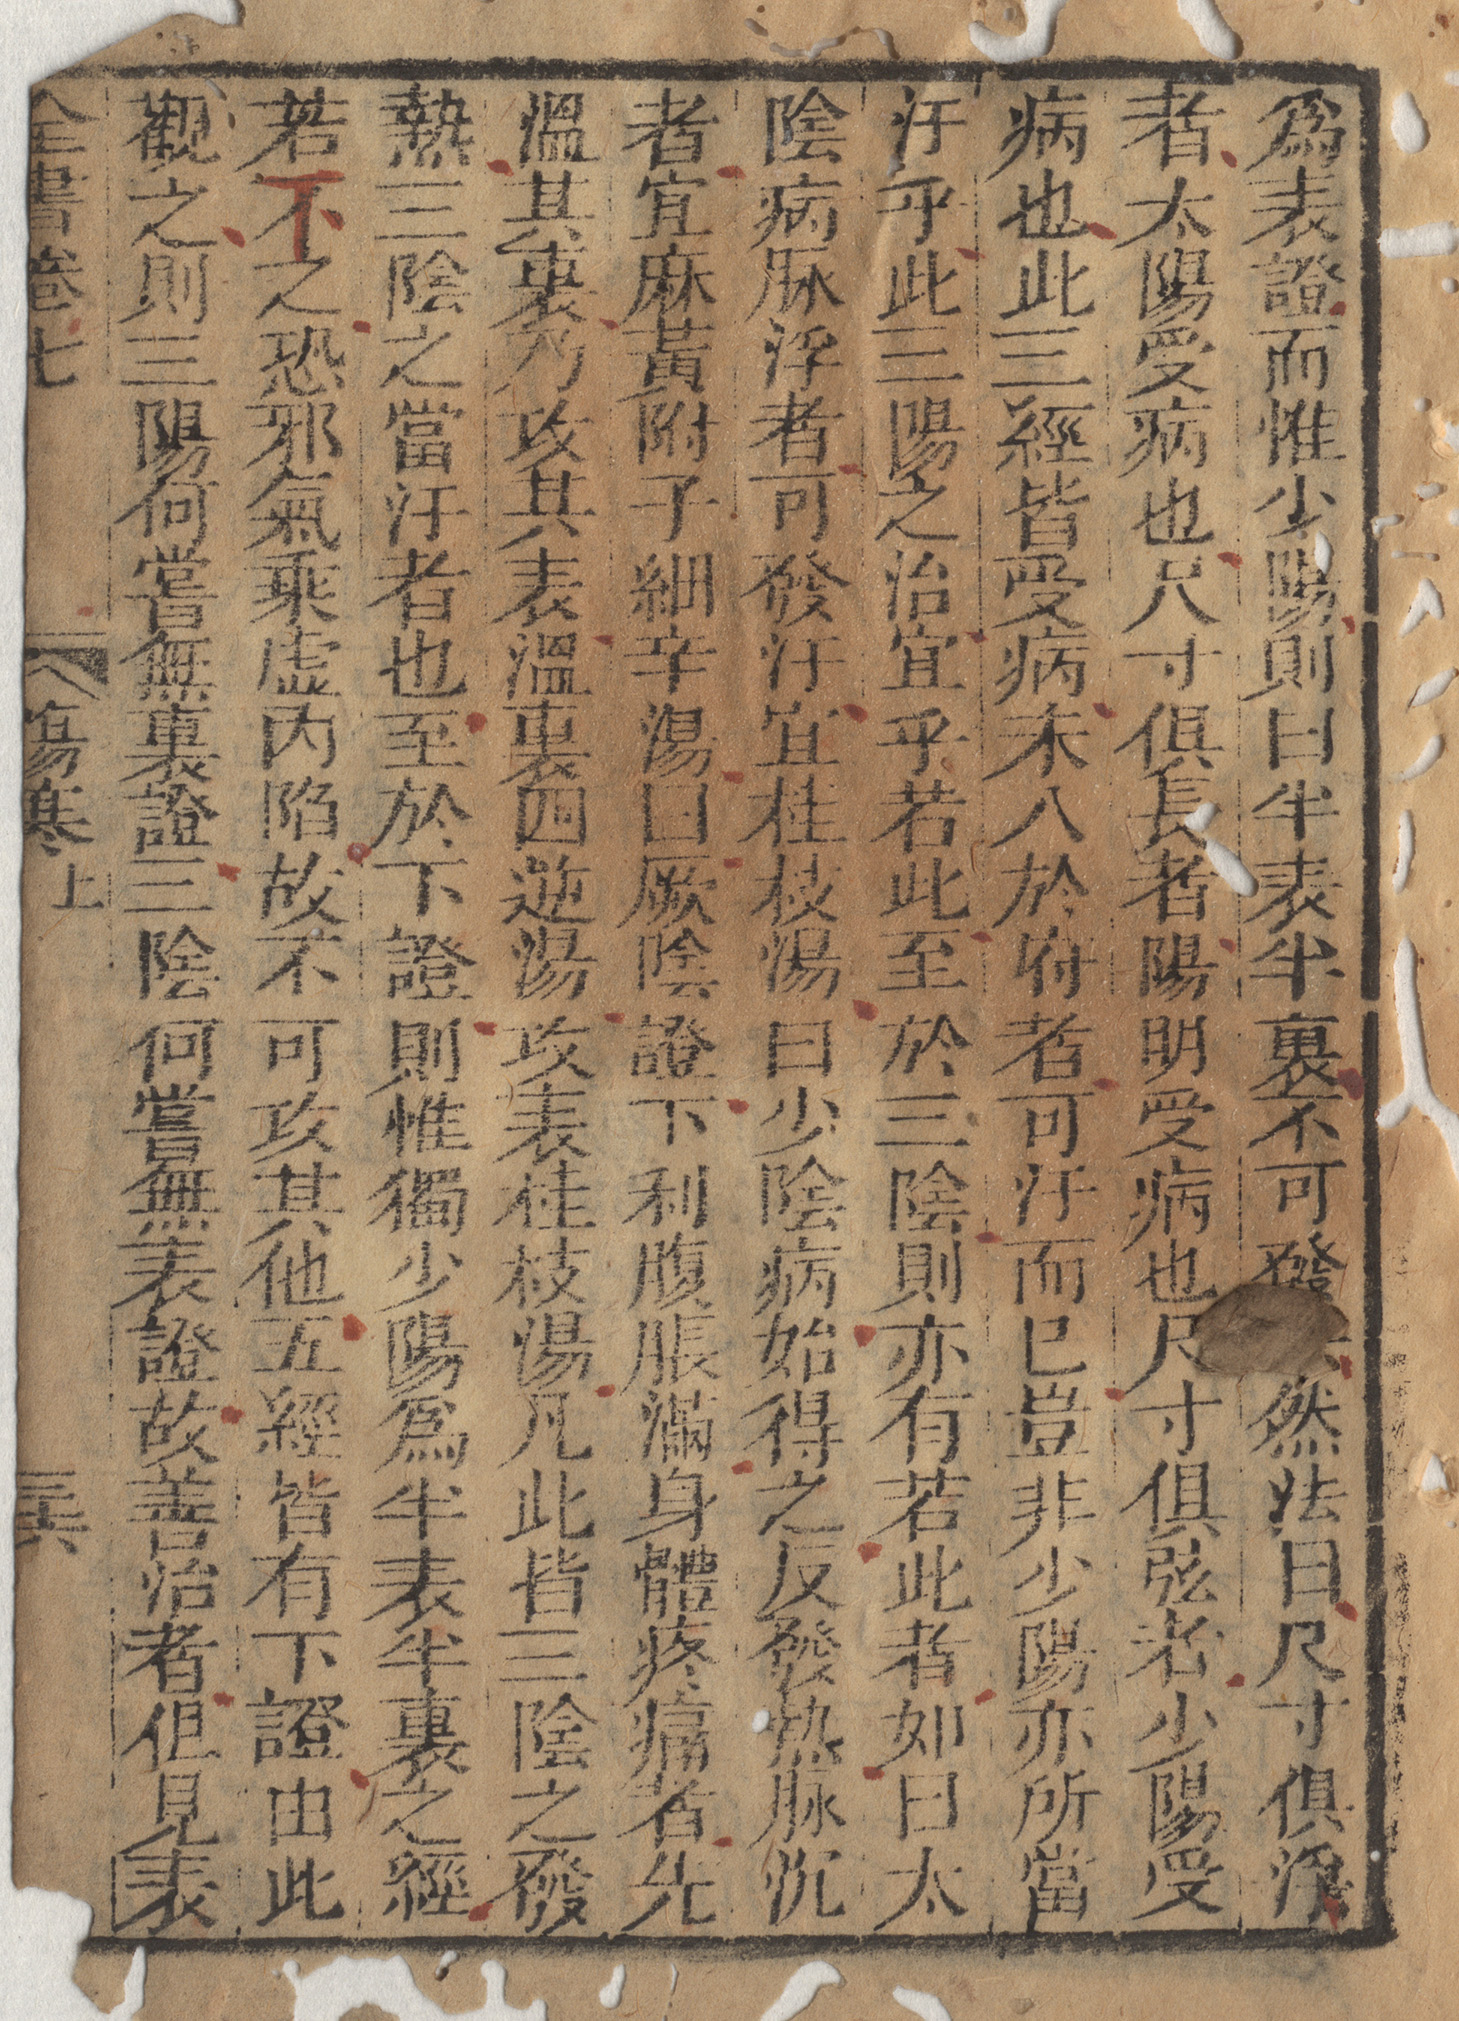 爲表證而惟少陽則曰半表半裏不可發然法曰尺寸俱浮
者太陽受病也尺寸俱長者陽明受病也尺寸俱弦者少陽受
病也此三經皆受病未入於府者可汗而已豈非少陽亦所當
汗乎此三陽之治宜乎若此至於三陰則亦有若此者如曰太
陰病脉浮者可發汗宜桂枝湯曰少陰病始得之反發熱脉沉
者宜麻黃附子細辛湯曰厥陰證下利腹脹滿身體疼痛者先
溫其裏乃攻其表溫裏四逆湯攻表桂枝湯凡此皆三陰之發
熱三陰之當汗者也至於下證則惟獨少陽爲半表半裏之經
若不之恐邪氣乘虛內陷故不可攻其他五經皆有下證由此
觀之則三陽何嘗無裏證三陰何嘗無表證故善治者但見表
全書卷七 傷寒上